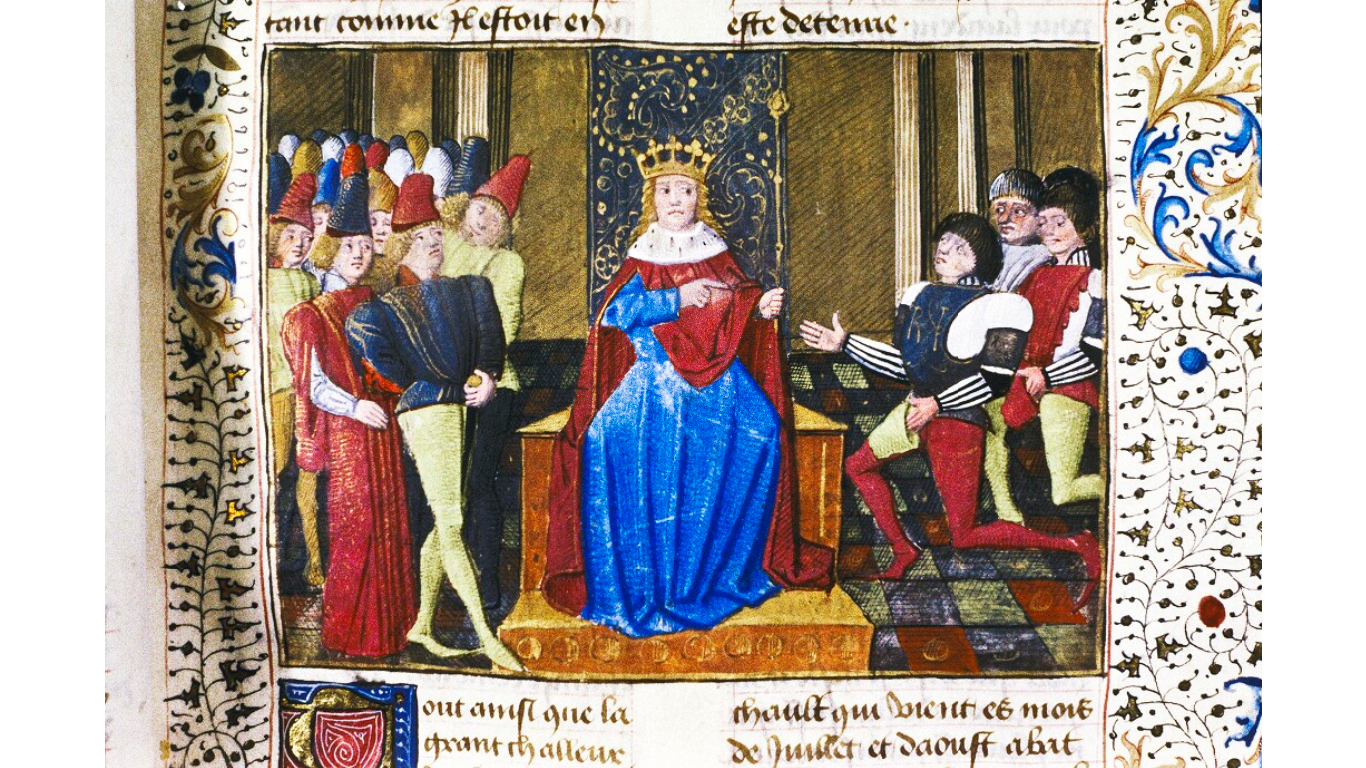 tant comme Il estoit en
este detenue.
out ainsi que la
grant challeur
chault qui vient es mois
de Juillet et daoust abat